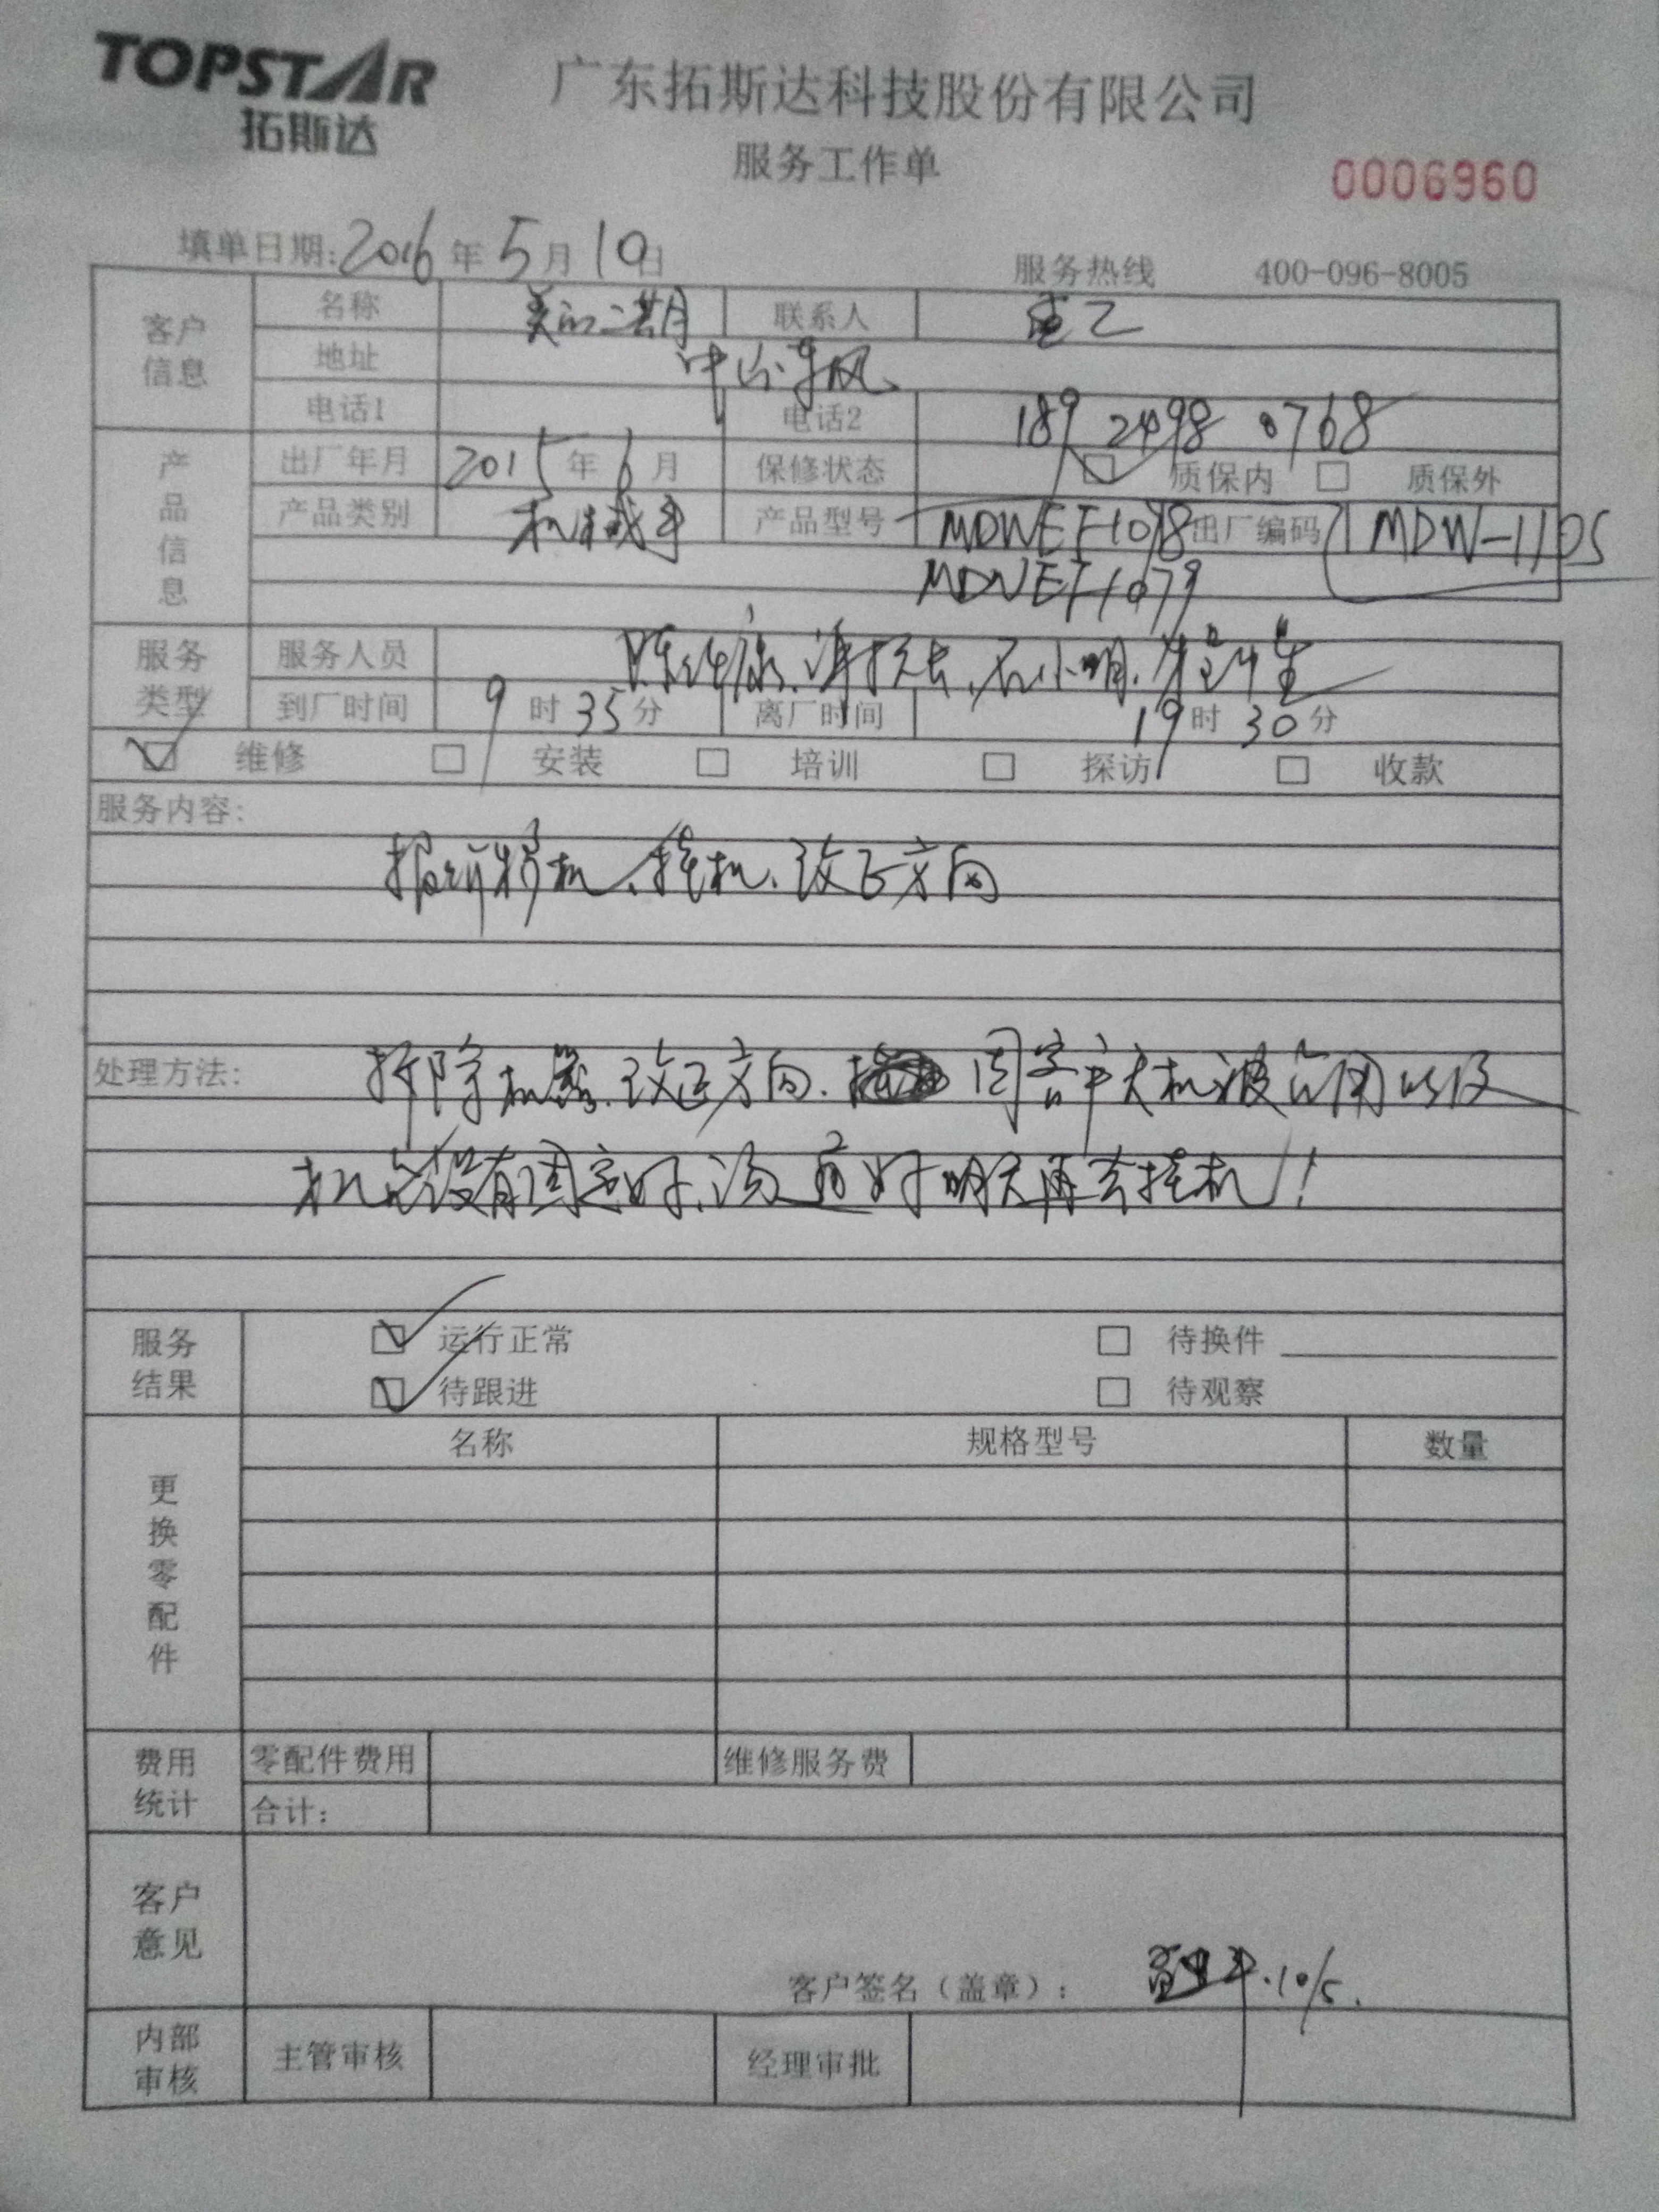 TOPSTAR
拓斯达
广东拓斯达科技股份有限公司
服务工作单
0006960
填单日期:2016年5月10日
服务热线 400-096-8005
客户信息 名称 美的二期 联系人
地址 中山东风
电话1 电话2 189 2498 0768
产品信息 出厂年月 2015年6月 保修状态 ☑ 质保内 □ 质保外
产品类别 机械手 产品型号 MDWEF1078 出厂编码 MDW-1105
MDWEF1079
服务类型 服务人员 石小明
到厂时间 9时35分 离厂时间 19时30分
☑ 维修 □ 安装 □ 培训 □ 探访 □ 收款
服务内容:
移机、挂机、改正方向
处理方法: 拆除机器.改正方向. 因客户天机被占用以及
机台没有固定好, 明天再去挂机!
服务结果 ☑ 运行正常 □ 待换件
☑ 待跟进 □ 待观察
更换零配件 名称 规格型号 数量
费用统计 零配件费用 维修服务费
合计:
客户意见
客户签名(盖章): 10/5.
内部审核 主管审核 经理审批